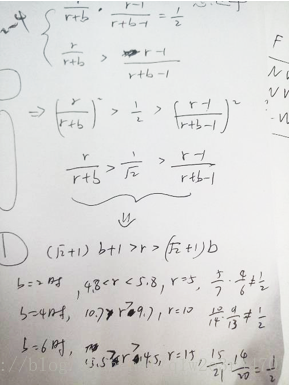 r/(r+b) · (r-1)/(r+b-1) = 1/2
r/(r+b) > (r-1)/(r+b-1)
⇒ (r/(r+b))² > 1/2 > ((r-1)/(r+b-1))²
r/(r+b) > 1/√2 > (r-1)/(r+b-1)
⇓
① (√2+1) b+1 > r > (√2+1) b
b=2时, 4.8<r<5.8, r=5, 5/7 · 4/6 ≠ 1/2
b=4时, 10.7>r>9.7, r=10 10/14 · 9/13 ≠ 1/2
b=6时, 15.5>r>14.5, r=15, 15/21 · 14/20 = 1/2